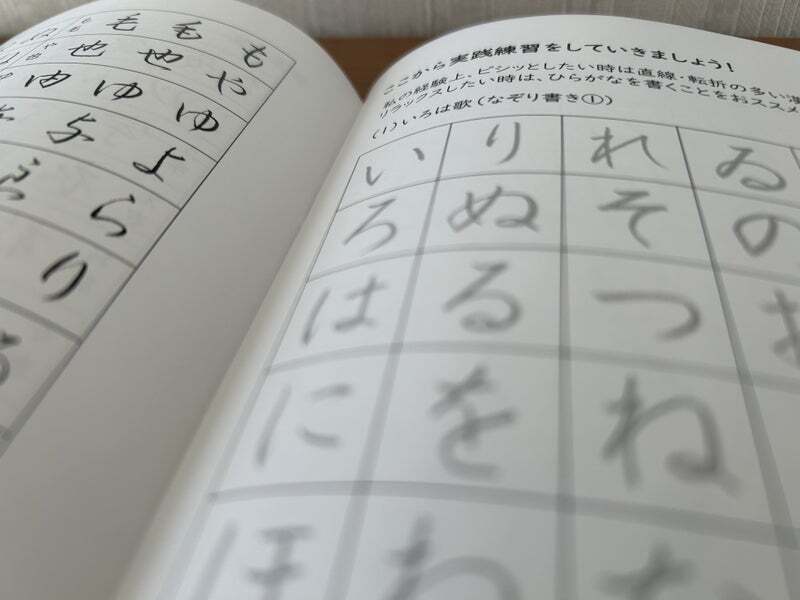 も も も も
や や 也 也
ゆ ゆ ゆ
よ よ
ら
り
ここから実践練習をしていきましょう!
私の経験上、ピシッとしたい時は直線・転折の多い
リラックスしたい時は、ひらがなを書くことをおススメ
(1)いろは歌(なぞり書き①)
い り れ ゐ
ろ ぬ そ の
は る つ お
に を ね
ほ わ な